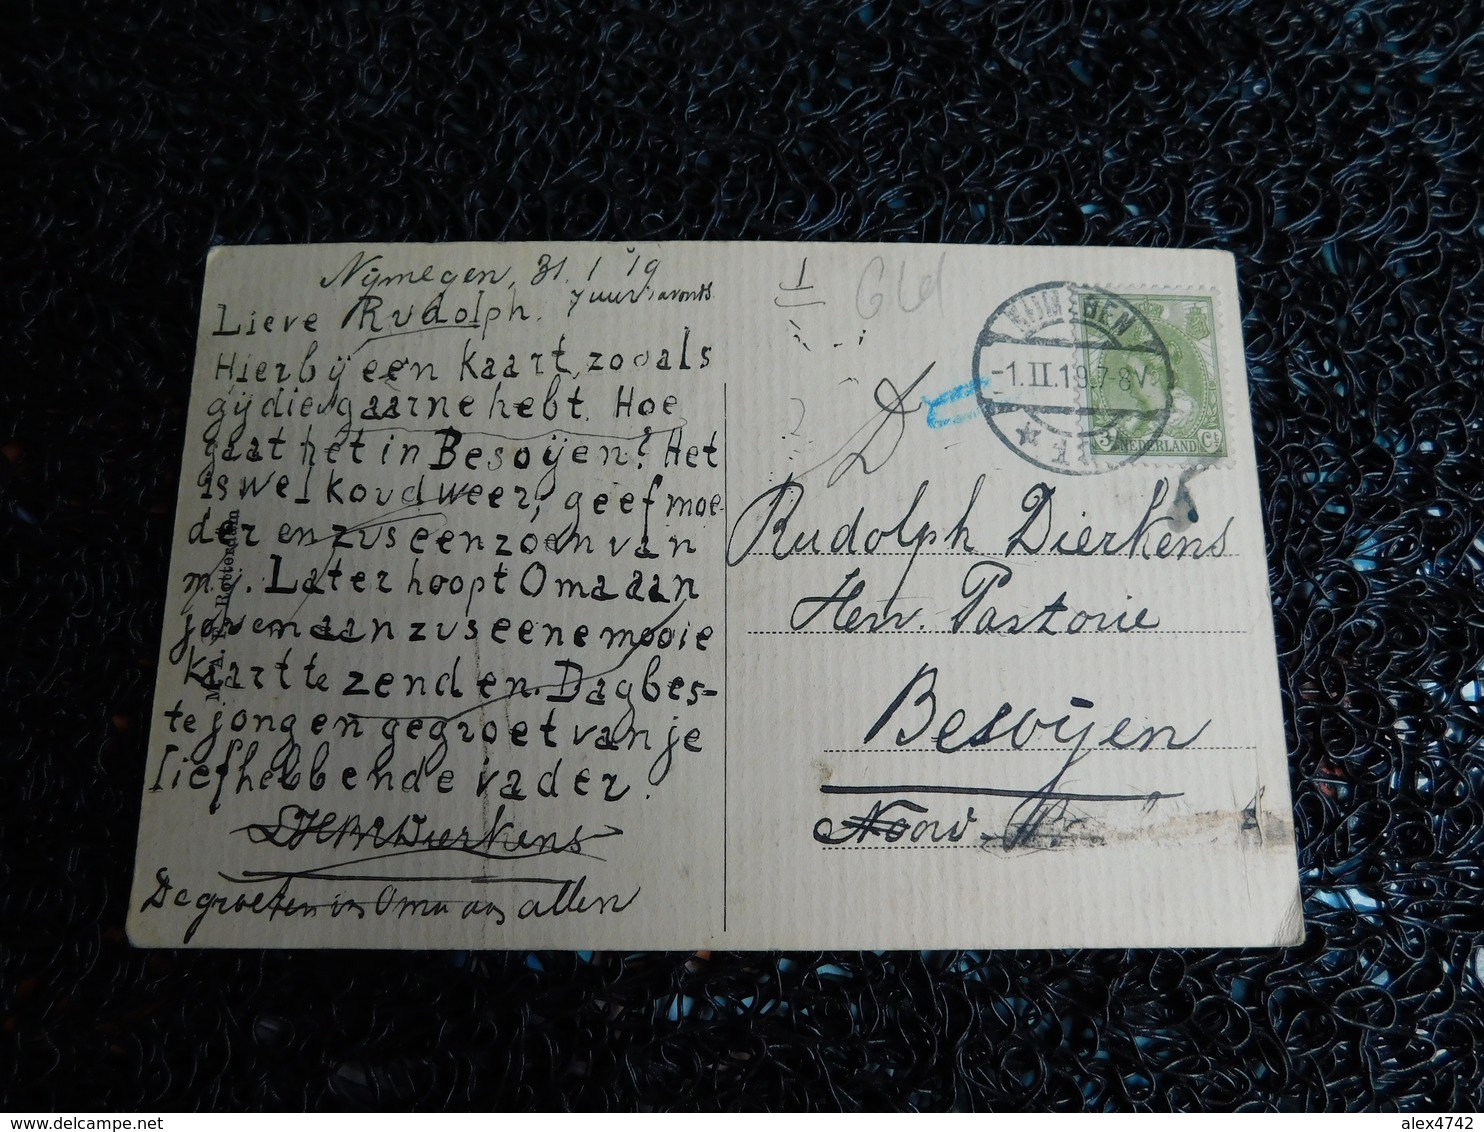 Nijmegen, 31.1 '19
7 uur 's avonds
Lieve Rudolph.
Hierbij een kaart, zooals
gij die gaarne hebt. Hoe
gaat het in Besoijen? Het
is wel koud weer, geef moe-
der en zus een zoen van
mij. Later hoopt Oma aan
jou en aan zus eene mooie
kaart te zenden. Dag bes-
te jongen gegroet van je
liefhebbende vader.
Dierkens
De groeten Oma allen
Rotterdam
1
Gld
NIJMEGEN
-1.II.19.7-8V
1
3 NEDERLAND Ct
Rudolph Dierkens
Herv. Pastorie
Besoijen
Noord
delcampe.net
alex4742